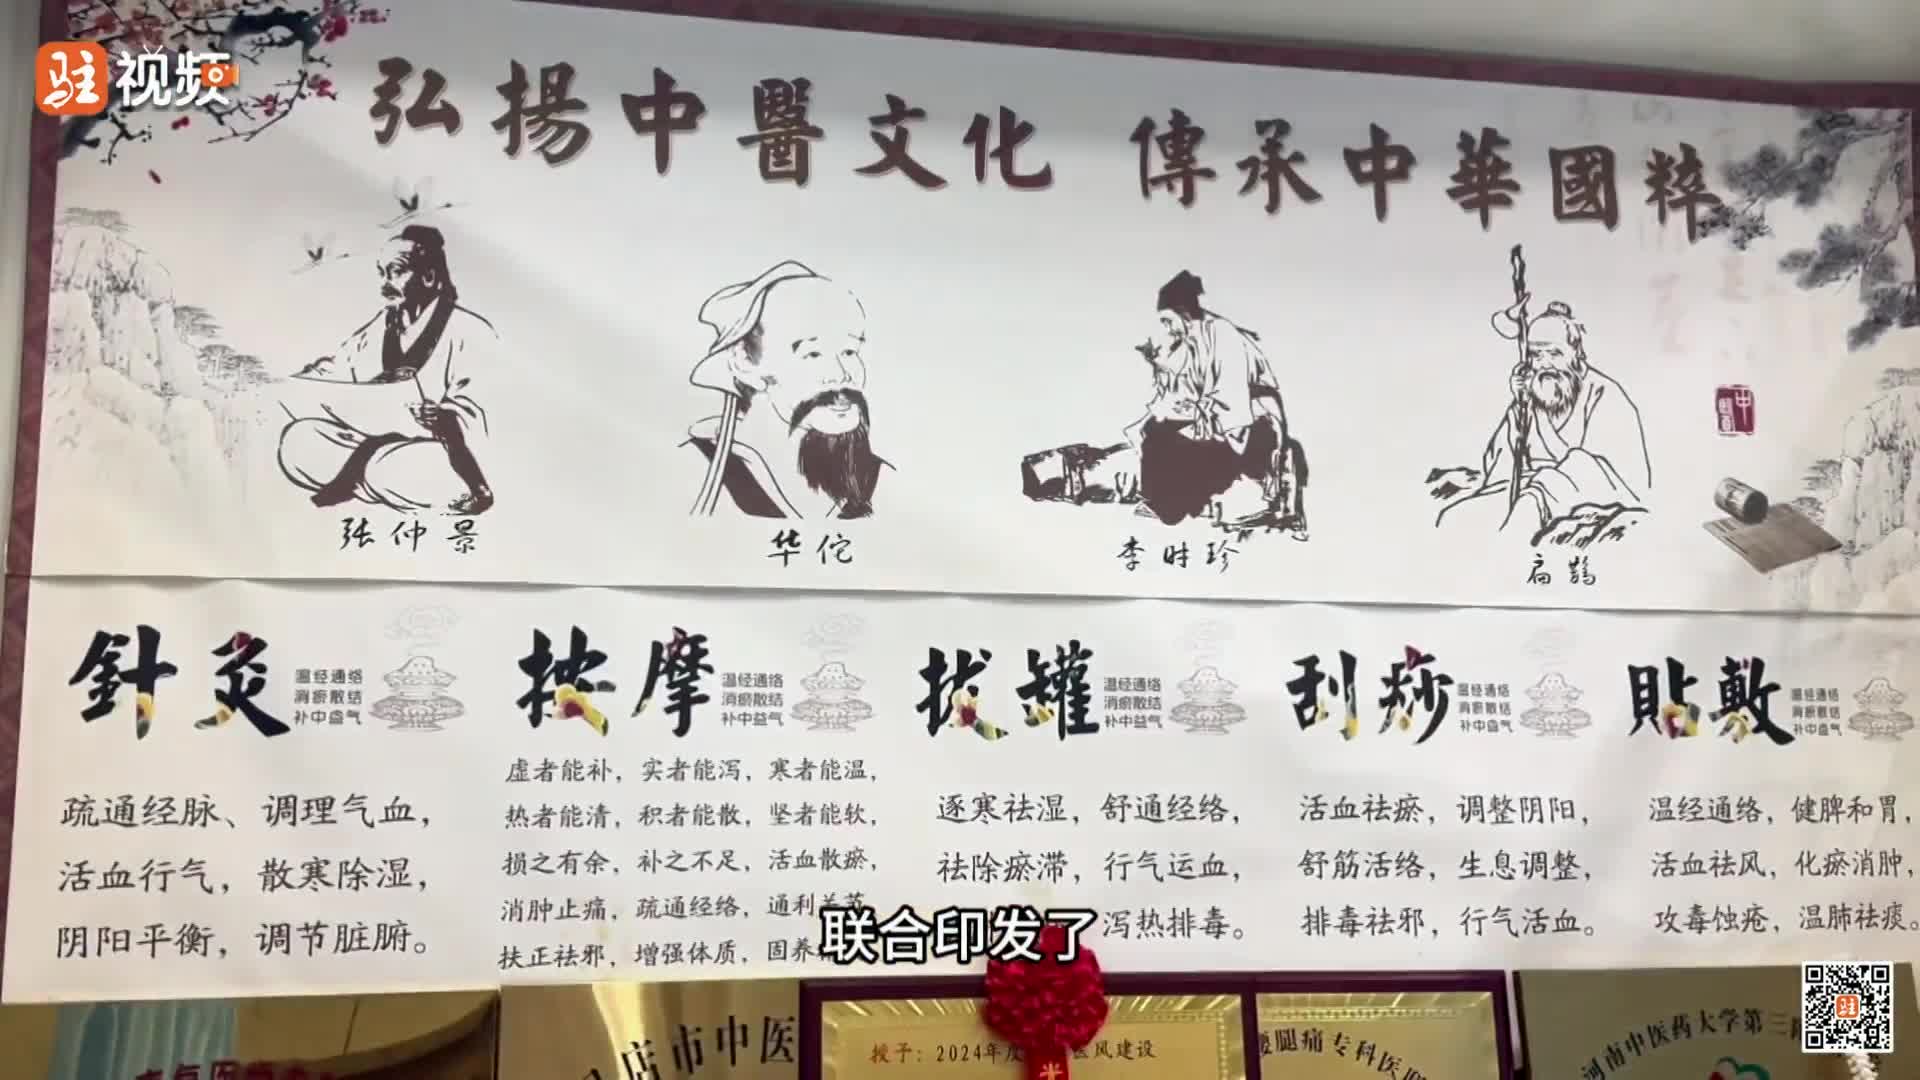 驻视频
弘揚中醫文化 傳承中華國粹
张仲景
华佗
李时珍
扁鹊
中醫
針灸
温经通络
消瘀散结
补中益气
疏通经脉、调理气血，
活血行气，散寒除湿，
阴阳平衡，调节脏腑。
按摩
温经通络
消瘀散结
补中益气
虚者能补，实者能泻，寒者能温，
热者能清，积者能散，坚者能软，
损之有余，补之不足，活血散瘀，
消肿止痛，疏通经络，通利关节
扶正祛邪，增强体质，固养
拔罐
温经通络
消瘀散结
补中益气
逐寒祛湿，舒通经络，
祛除瘀滞，行气运血，
泻热排毒。
刮痧
温经通络
消瘀散结
补中益气
活血祛瘀，调整阴阳，
舒筋活络，生息调整，
排毒祛邪，行气活血。
貼敷
温经通络
消瘀散结
补中益气
温经通络，健脾和胃，
活血祛风，化瘀消肿，
攻毒蚀疮，温肺祛痰。
联合印发了
店市中医
授予：2024年度 医风建设
腰腿痛专科医
河南中医药大学第三
驻